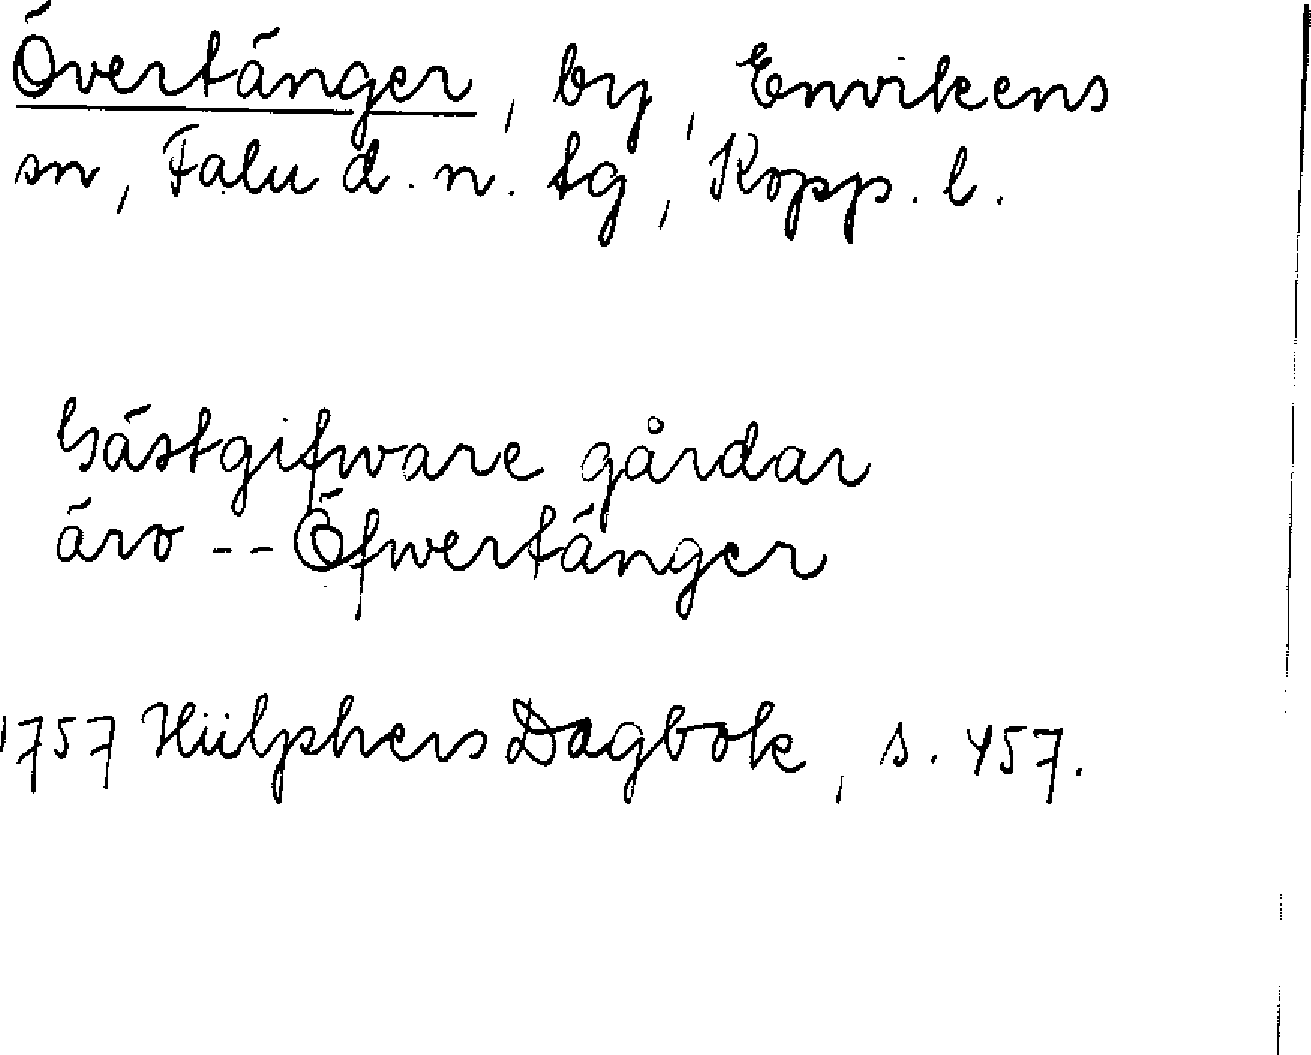 Övertänger, by, Envikens
sn, Falu d. n. tg, Kopp. l.
Gästgifware gårdar
äro -- Öfwertänger
1757 Hülphers Dagbok, s. 457.